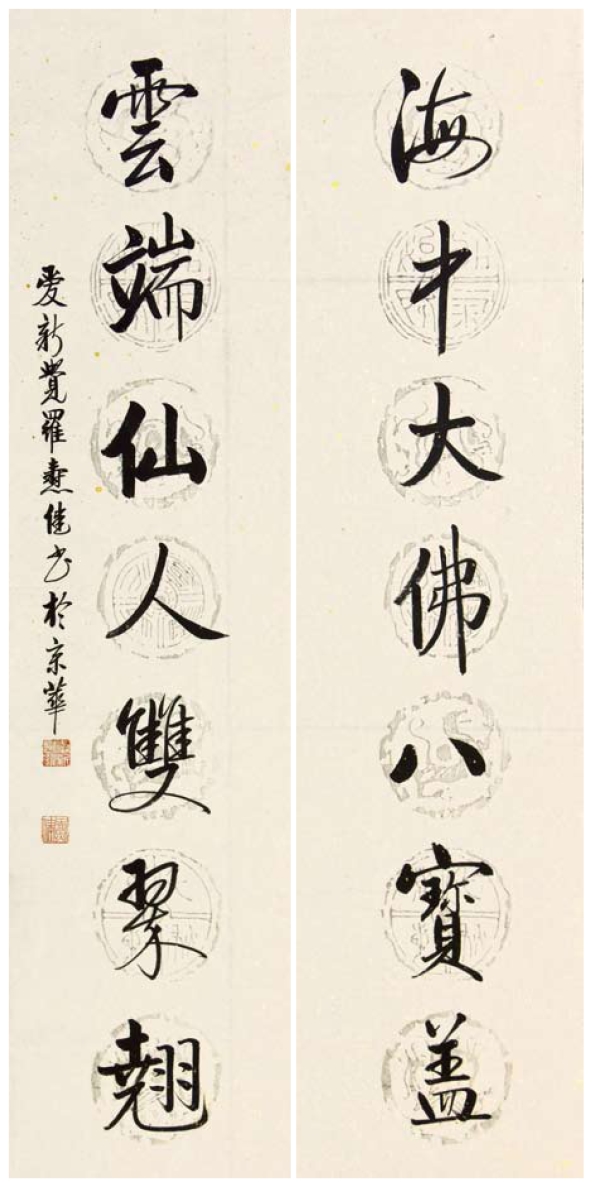 海中大佛八寶盖
雲端仙人雙翠翹
愛新覺羅焘佳书於京華